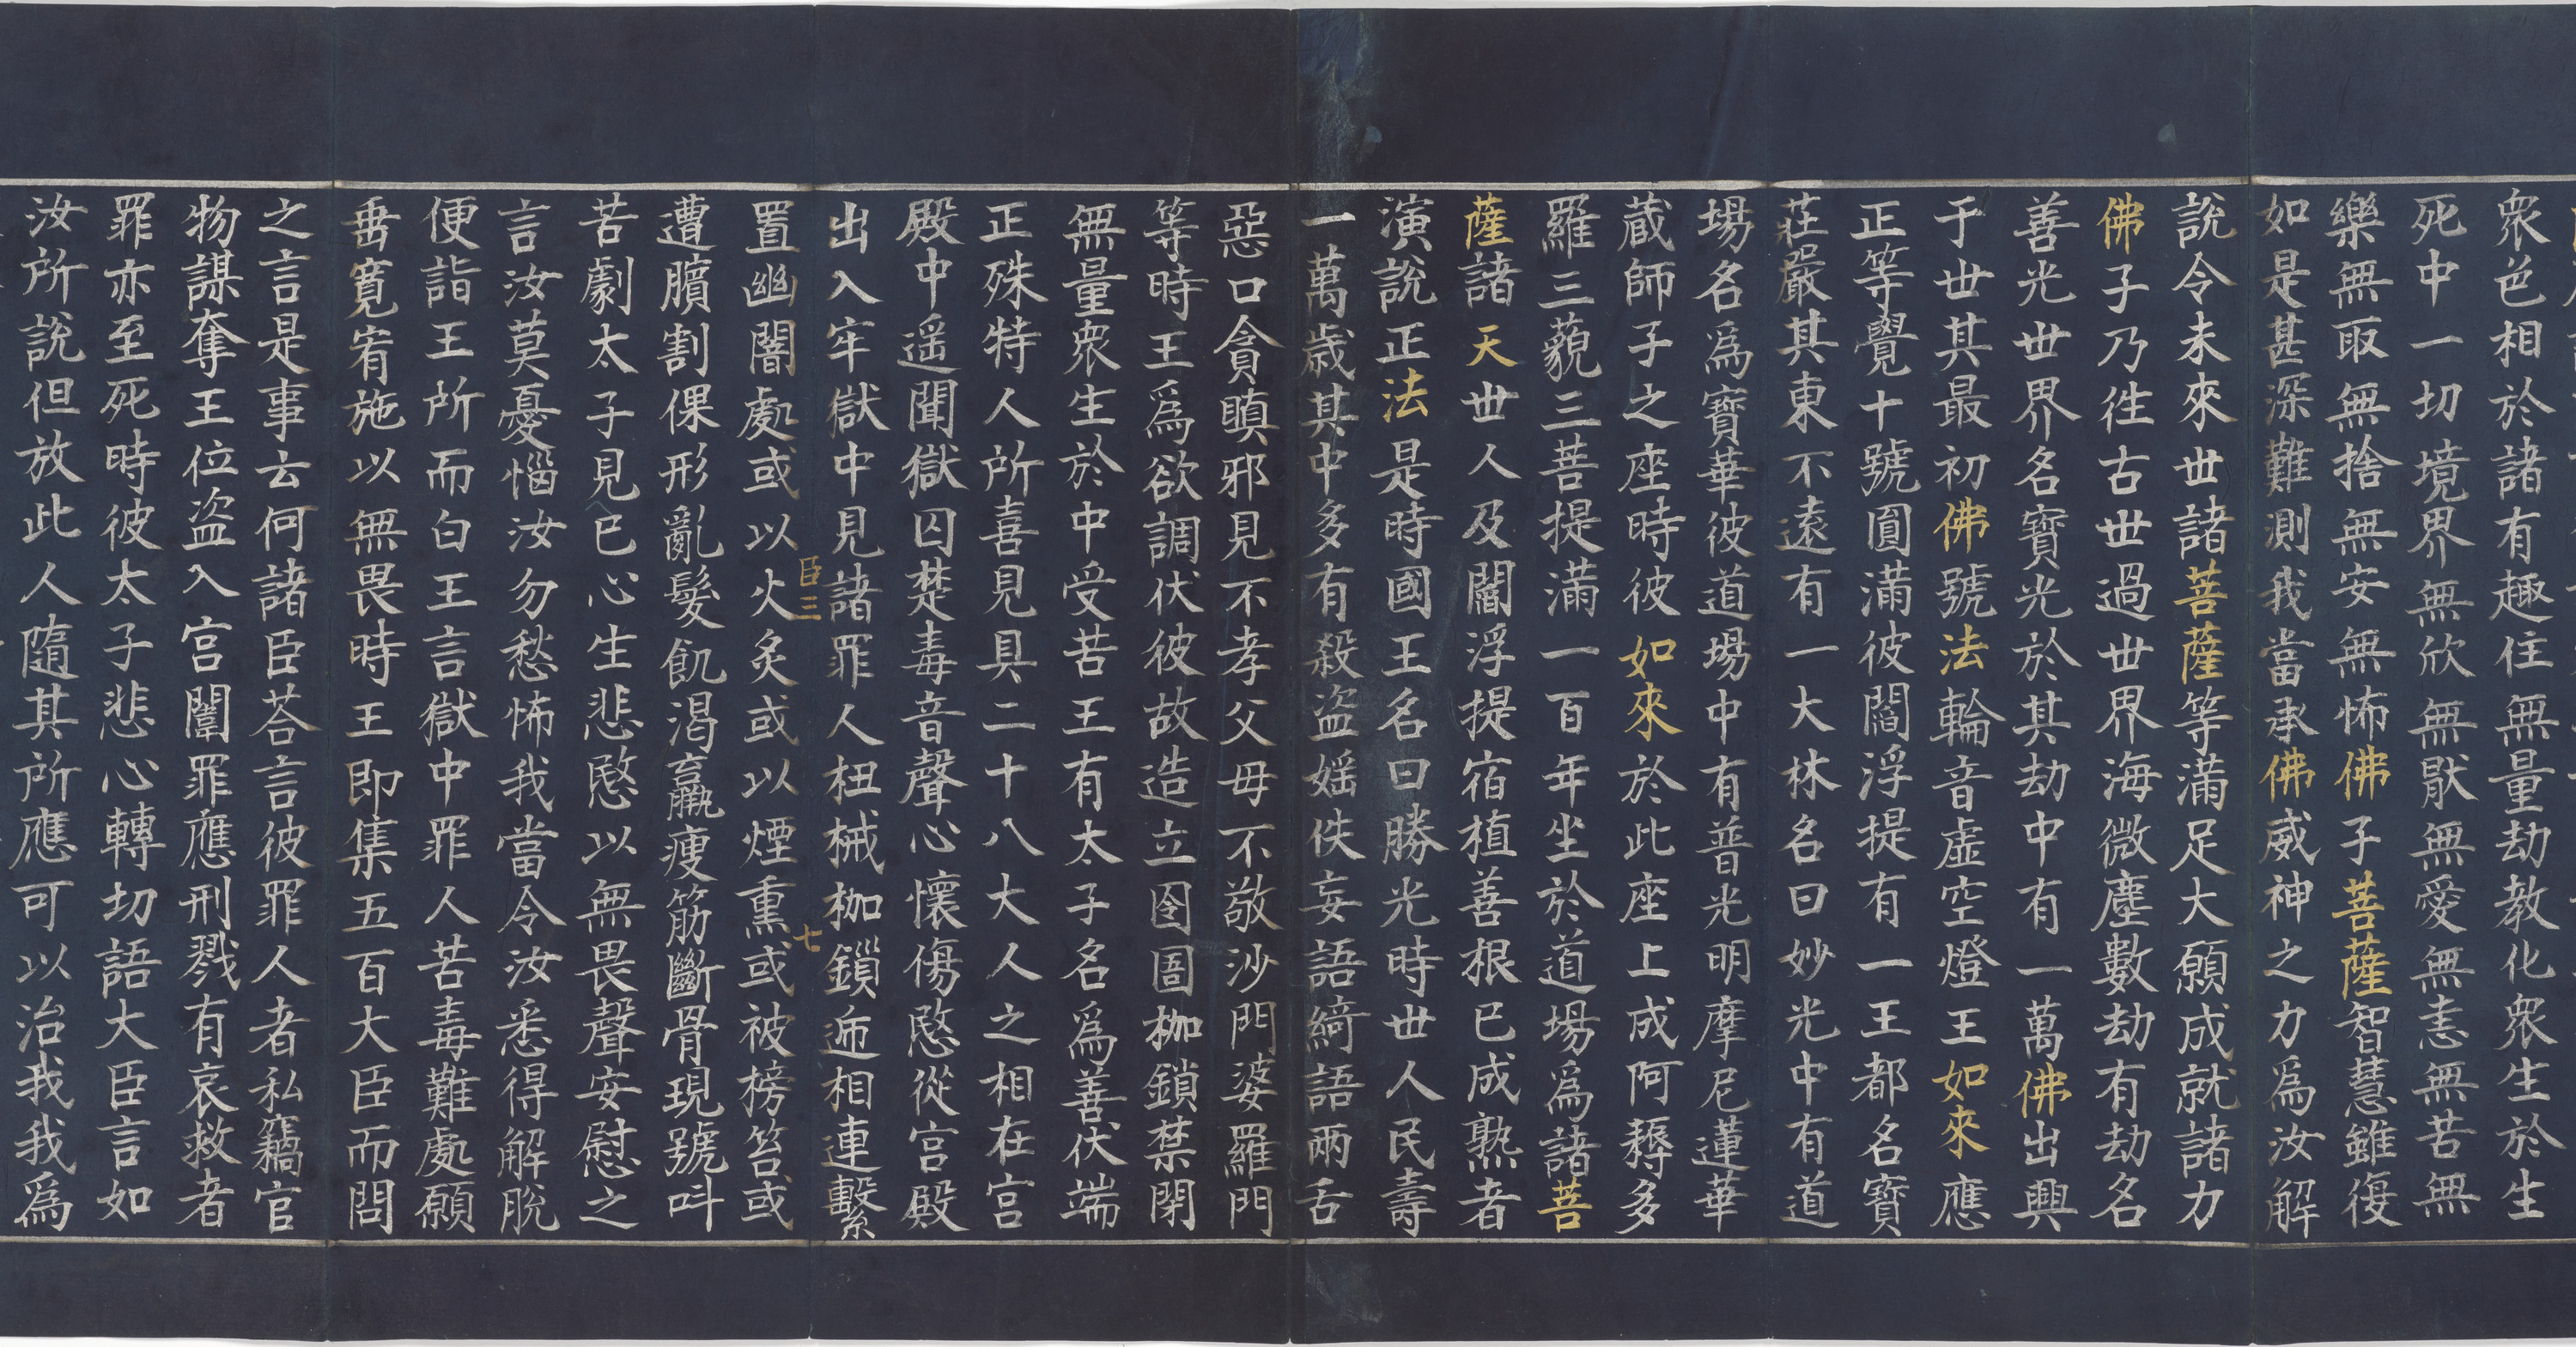 衆色相於諸有趣住無量劫教化衆生於生
死中一切境界無欣無猒無愛無恚無苦無
樂無取無捨無安無怖佛子菩薩智慧雖復
如是甚深難測我當承佛威神之力爲汝解
說令未來世諸菩薩等滿足大願成就諸力
佛子乃徃古世過世界海微塵數劫有劫名
善光世界名寶光於其劫中有一萬佛出興
于世其最初佛號法輪音虛空燈王如來應
正等覺十號圓滿彼閻浮提有一王都名寶
莊嚴其東不遠有一大林名曰妙光中有道
場名爲寶華彼道場中有普光明摩尼蓮華
蔵師子之座時彼如來於此座上成阿耨多
羅三藐三菩提滿一百年坐於道場爲諸菩
薩諸天世人及閻浮提宿植善根已成熟者
演說正法是時國王名曰勝光時世人民壽
一萬歲其中多有殺盜婬佚妄語綺語兩舌
惡口貪瞋邪見不孝父母不敬沙門婆羅門
等時王爲欲調伏彼故造立囹圄枷鎖禁閉
無量衆生於中受苦王有太子名爲善伏端
正殊特人所喜見具二十八大人之相在宮
殿中遥聞獄囚楚毒音聲心懷傷愍從宮殿
出入牢獄中見諸罪人杻械枷鎖逓相連繫
臣三 七
置幽闇處或以火炙或以煙熏或被榜笞或
遭臏割倮形亂髮飢渴羸瘦筋斷骨現號叫
苦劇太子見已心生悲愍以無畏聲安慰之
言汝莫憂惱汝勿愁怖我當令汝悉得解脫
便詣王所而白王言獄中罪人苦毒難處願
垂寬宥施以無畏時王即集五百大臣而問
之言是事云何諸臣荅言彼罪人者私竊官
物謀奪王位盜入宮闈罪應刑戮有哀救者
罪亦至死時彼太子悲心轉切語大臣言如
汝所說但放此人隨其所應可以治我我爲